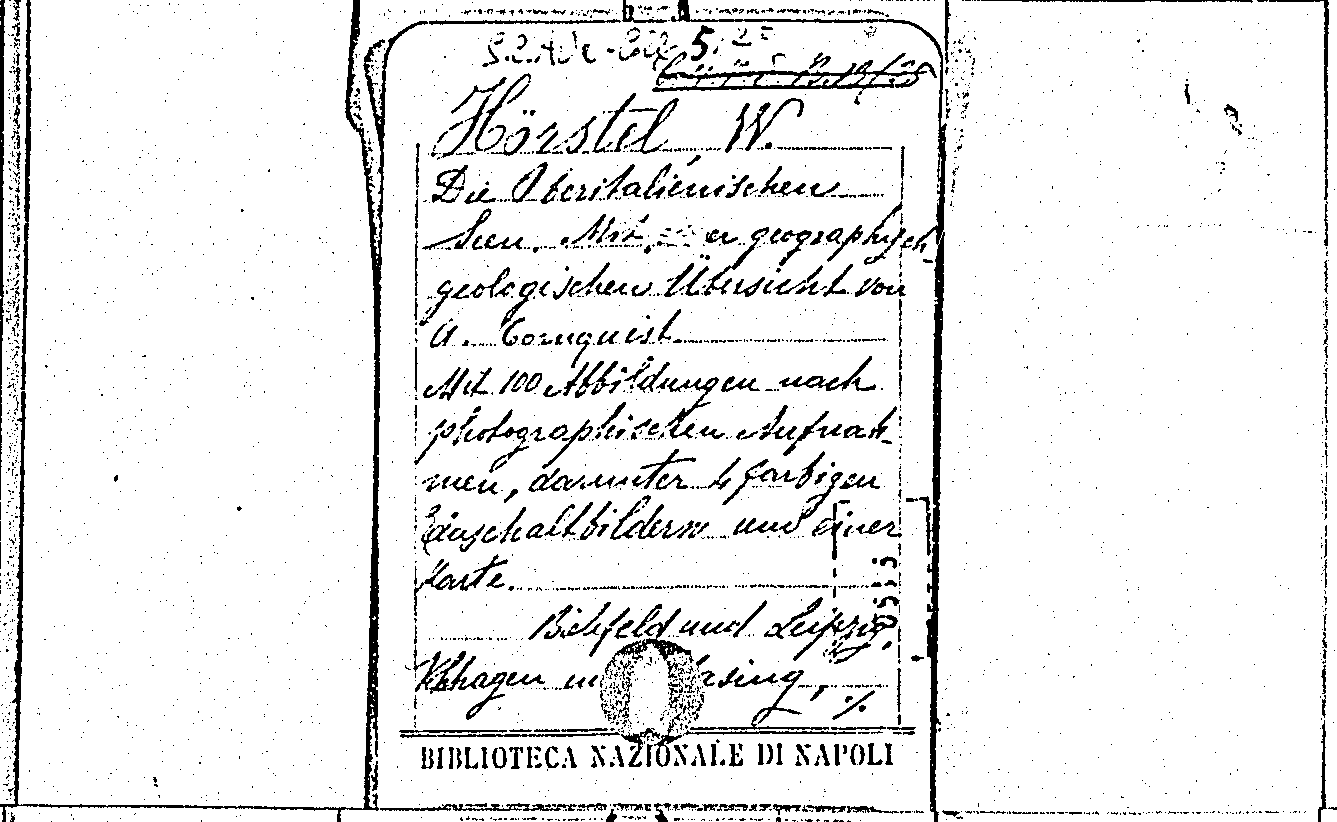 5.
Hörstel, W.
Die Oberitalienischen
Seen. Mit er geographisch-
geologischen Übersicht von
A. Tornquist.
Mit 100 Abbildungen nach
photographischen Aufnah-
men, darunter 4 farbigen
Einschaltbildern und einer
Karte.
Bielefeld und Leipzig,
Velhagen
BIBLIOTECA NAZIONALE DI NAPOLI